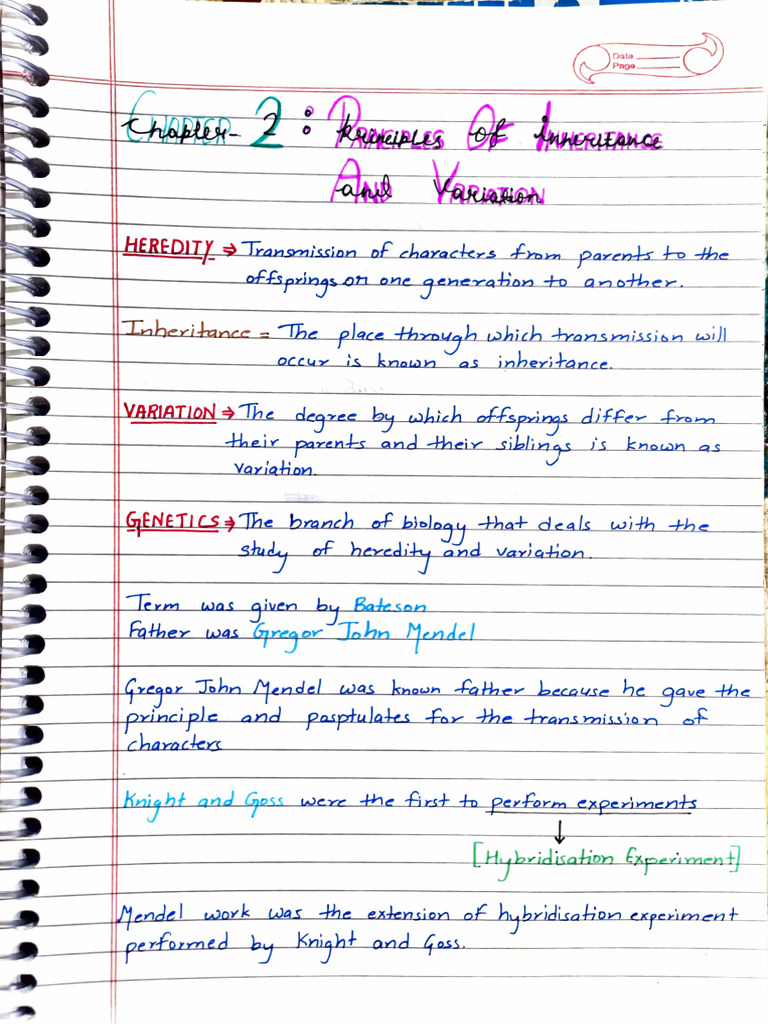 Date
Page
Chapter- 2 : Principles Of Inheritance
and Variation
HEREDITY ⇒ Transmission of characters from parents to the
offsprings or one generation to another.
Inheritance = The place through which transmission will
occur is known as inheritance.
VARIATION ⇒ The degree by which offsprings differ from
their parents and their siblings is known as
variation.
GENETICS ⇒ The branch of biology that deals with the
study of heredity and variation.
Term was given by Bateson
Father was Gregor John Mendel
Gregor John Mendel was known father because he gave the
principle and pasptulates for the transmission of
characters
Knight and Goss were the first to perform experiments
↓
[Hybridisation Experiment]
Mendel work was the extension of hybridisation experiment
performed by Knight and Goss.